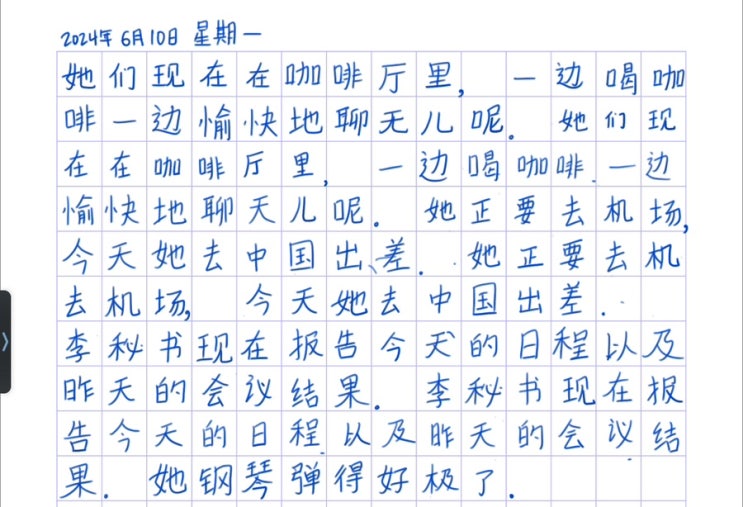 2024年6月10日 星期一
她们现在在咖啡厅里, 一边喝咖
啡一边愉快地聊无儿呢. 她们现
在在咖啡厅里, 一边喝咖啡.一边
愉快地聊天儿呢. 她正要去机场,
今天她去中国出、差. 她正要去机
去机场, 今天她去中国出差.
李秘书现在报告今天的日程以及
昨天的会议结果. 李秘书现在报
告今天的日程.以及昨天的会议结
果. 她钢琴弹得好极了.